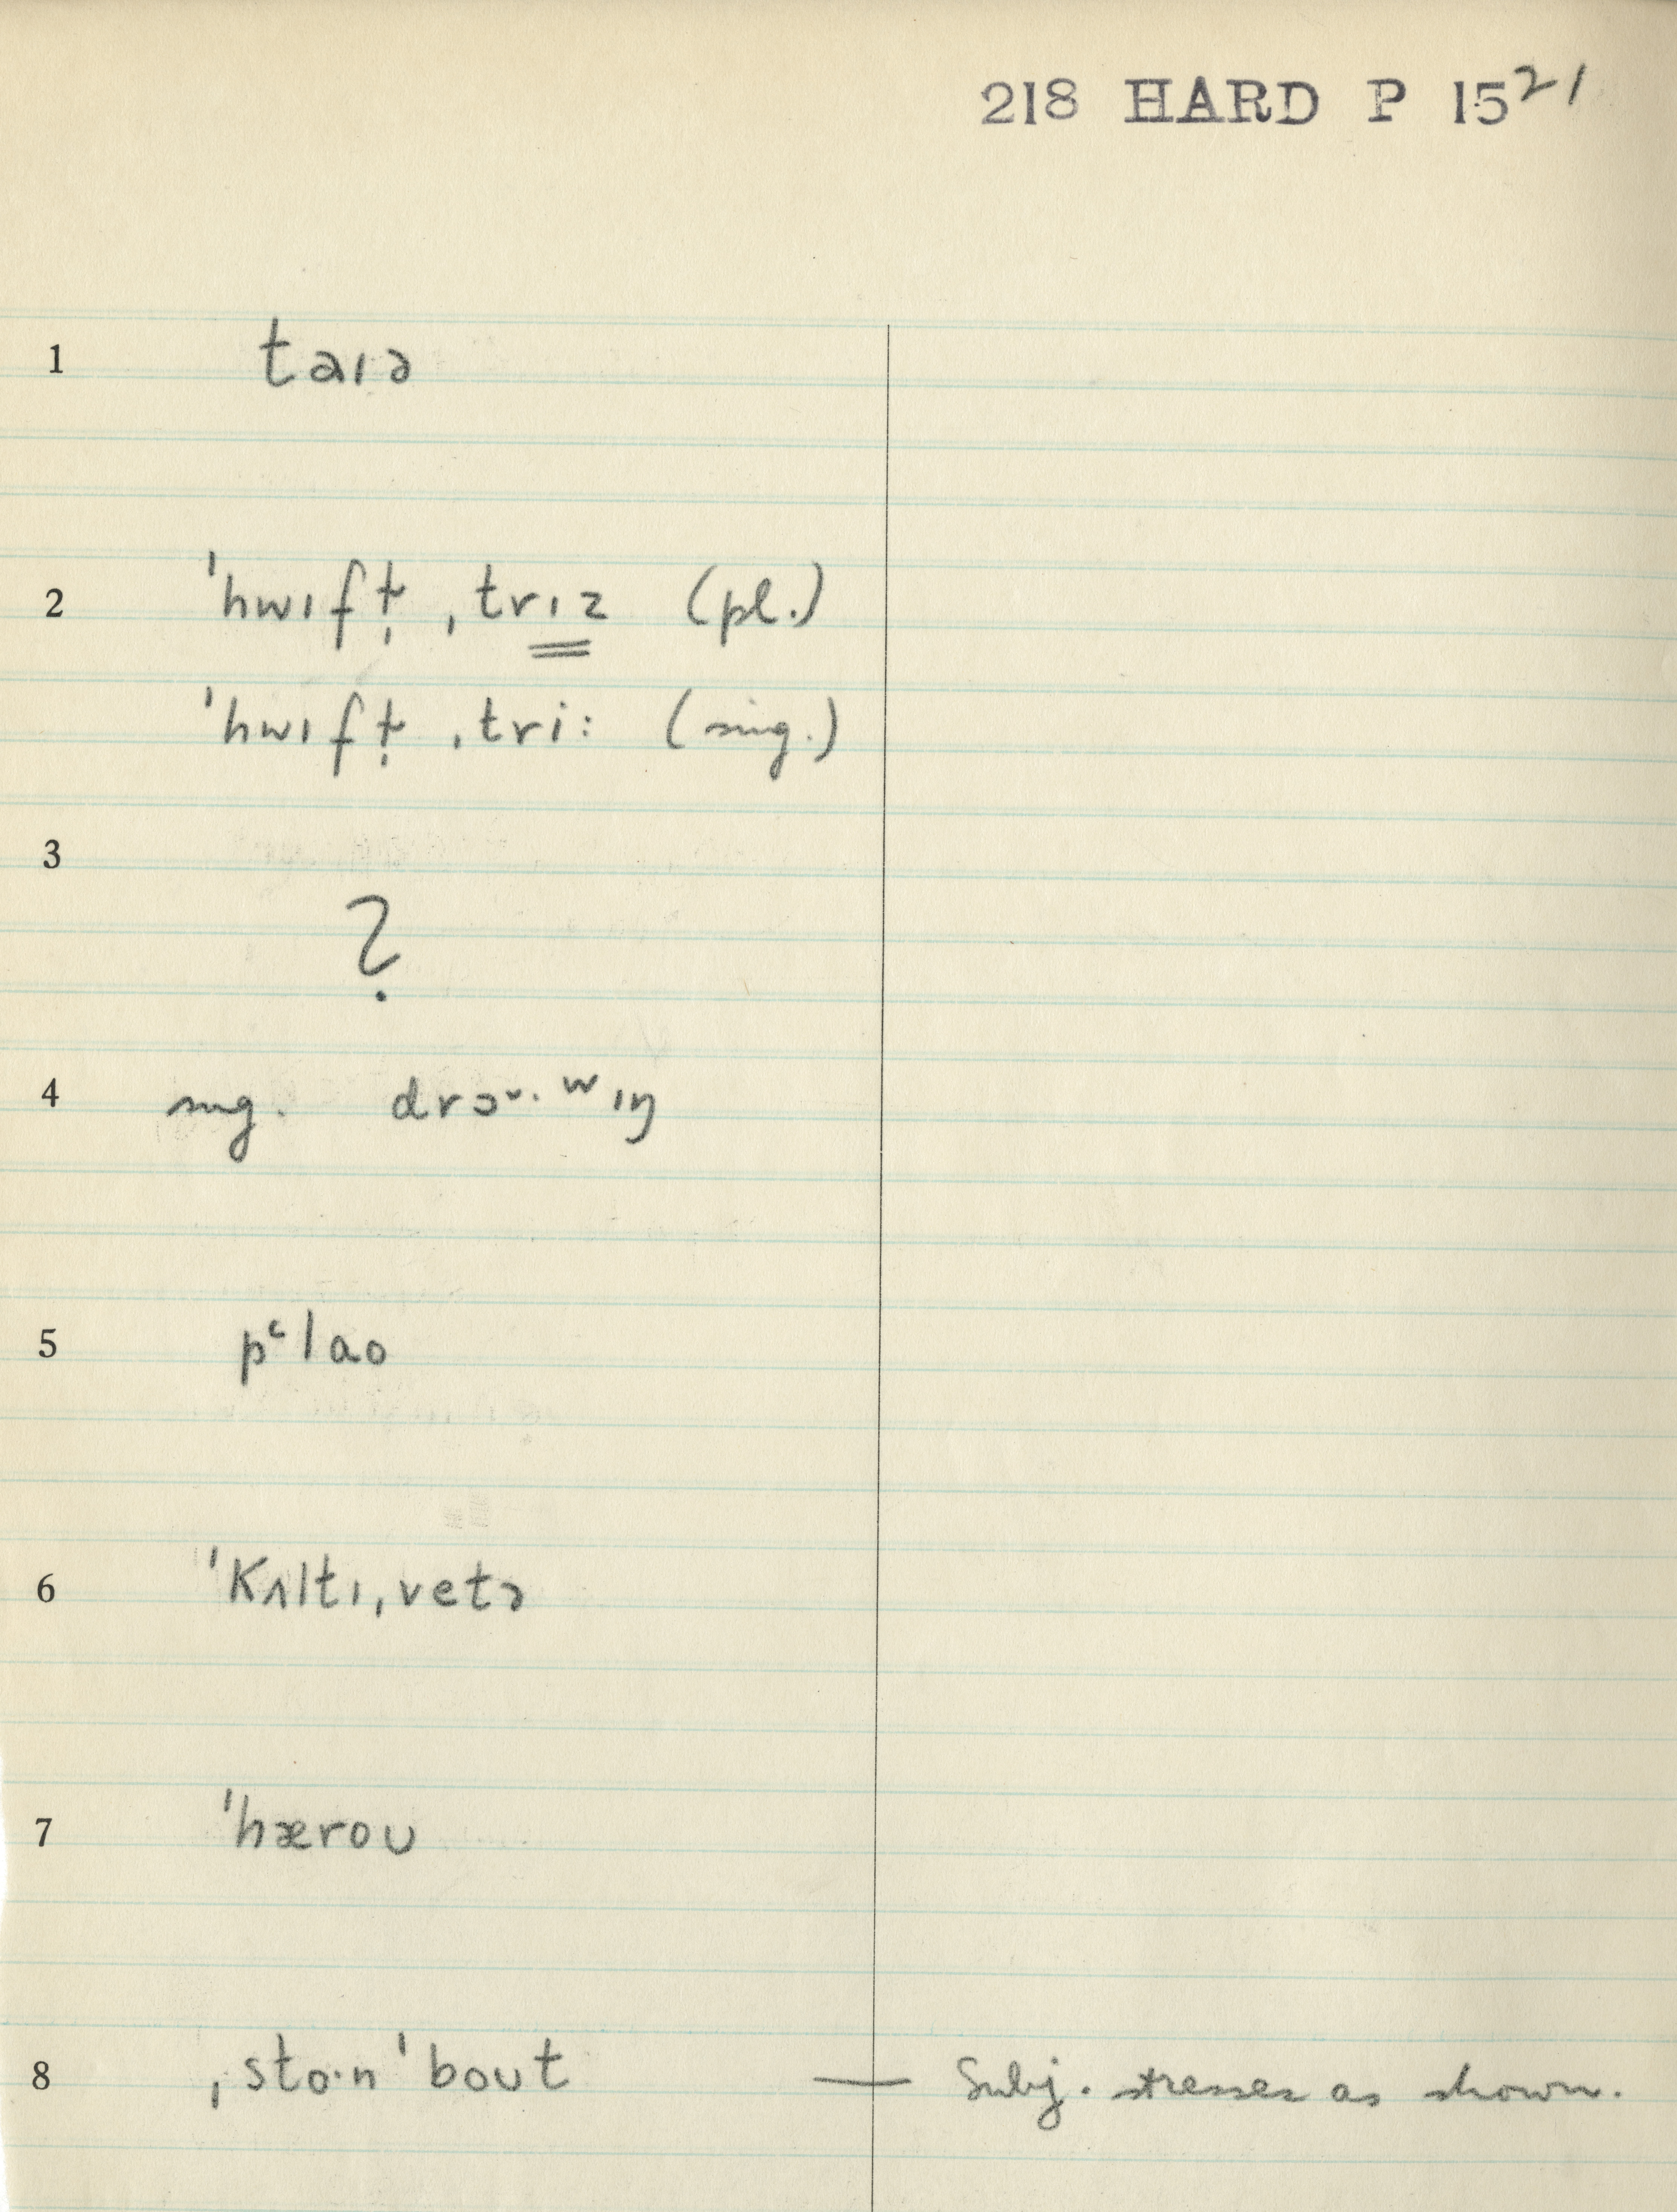 218 HARD P 15²¹
1 taɪə
2 ˈhwɪft̬̩ ˌtrɪz (pl.)
ˈhwɪft̬̩ ˌtri: (sing.)
3
?
4 sing. drɔᶸ·ʷɪŋ
5 pʿlao
6 ˈKʌltɪˌvetə
7 ˈhæroʊ
8 ˌsto·nˈboʊt — Subj. stresses as shown.